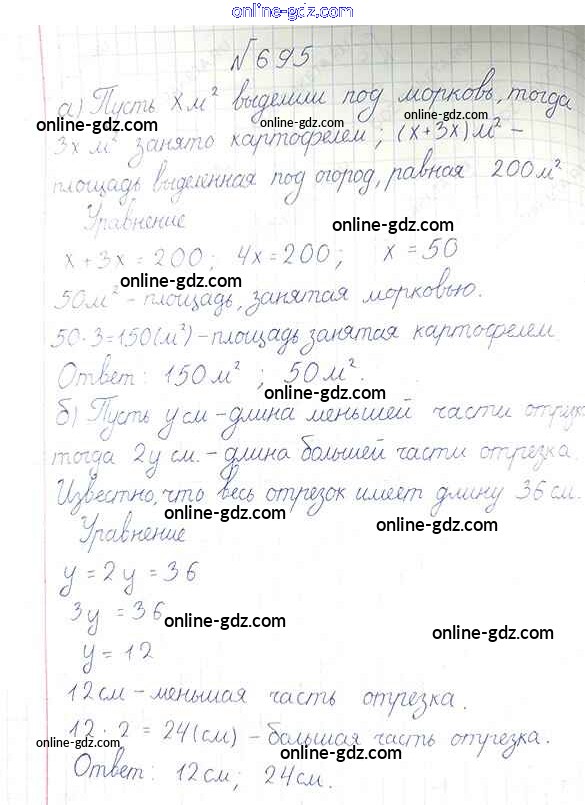 online-gdz.com
online-gdz.com
№695
а) Пусть x м² выделили под морковь, тогда
online-gdz.com online-gdz.com
3x м² занято картофелем; (x+3x) м² –
площадь выделенная под огород, равная 200 м²
Уравнение
online-gdz.com
x + 3x = 200; 4x = 200; x = 50
online-gdz.com
50 м² – площадь, занятая морковью.
online-gdz.com
50 · 3 = 150 (м²) – площадь занятая картофелем
Ответ: 150 м²; 50 м².
online-gdz.com
б) Пусть y см – длина меньшей части
тогда 2y см. – длина большей части отрезка.
online-gdz.com online-gdz.com
Известно, что весь отрезок имеет длину 36 см.
online-gdz.com online-gdz.com
Уравнение
y = 2y = 36
3y = 36
online-gdz.com
online-gdz.com
y = 12
12 см – меньшая часть отрезка.
12 · 2 = 24 (см) – большая часть отрезка.
online-gdz.com online-gdz.com
Ответ: 12 см; 24 см.